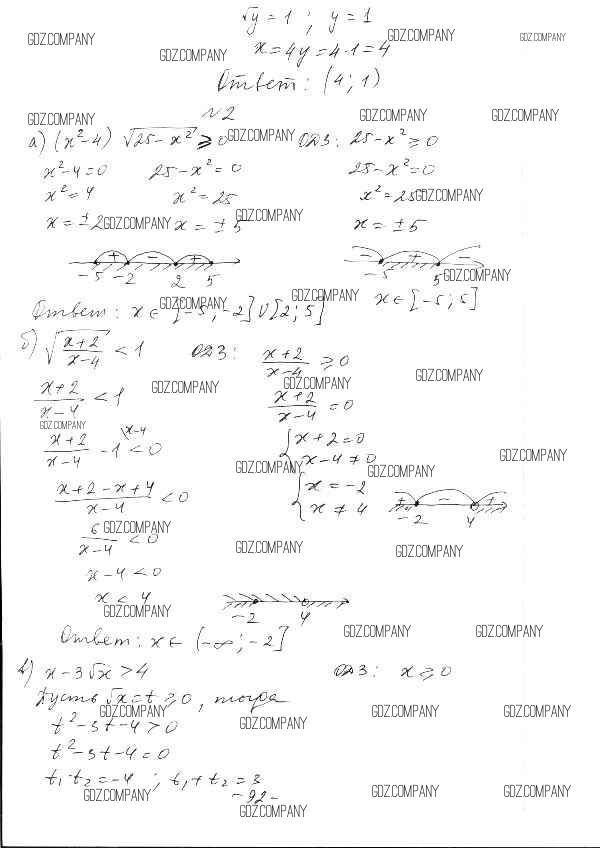 √y = 1 ; y = 1
x = 4y = 4·1 = 4
GDZ.COMPANY GDZ.COMPANY GDZ.COMPANY GDZ.COMPANY
Ответ: (4; 1)
№2
GDZ.COMPANY GDZ.COMPANY GDZ.COMPANY
а) (x²-4) √25-x² ≥ 0 GDZ.COMPANY ОДЗ: 25-x² ≥ 0
x²-4=0 25-x²=0 25-x²=0
x²=4 x²=25 x²=25 GDZ.COMPANY
x=±2 GDZ.COMPANY x=±5 GDZ.COMPANY x=±5
+ - + - + -
-5 -2 2 5 -5 5 GDZ.COMPANY
Ответ: x∈[-5;-2]∪[2;5] GDZ.COMPANY GDZ.COMPANY x∈[-5;5]
б) √(x+2)/(x-4) < 1 ОДЗ: (x+2)/(x-4) ≥ 0
(x+2)/(x-4) < 1 GDZ.COMPANY GDZ.COMPANY GDZ.COMPANY
(x+2)/(x-4) = 0
GDZ.COMPANY
(x+2)/(x-4) - 1 \x-4 < 0 { x+2=0
x-4≠0 GDZ.COMPANY GDZ.COMPANY GDZ.COMPANY
(x+2-x+4)/(x-4) < 0 { x=-2
x≠4
+ - +
-2 4
6/(x-4) < 0 GDZ.COMPANY GDZ.COMPANY GDZ.COMPANY
x-4<0
x<4 -2 4
GDZ.COMPANY
Ответ: x∈(-∞;-2] GDZ.COMPANY GDZ.COMPANY
в) x-3√x>4 ОДЗ: x≥0
Пусть √x=t≥0, тогда
GDZ.COMPANY GDZ.COMPANY GDZ.COMPANY GDZ.COMPANY
t²-3t-4>0
t²-3t-4=0
t₁·t₂=-4 ; t₁+t₂=3
GDZ.COMPANY GDZ.COMPANY GDZ.COMPANY
-92-
GDZ.COMPANY